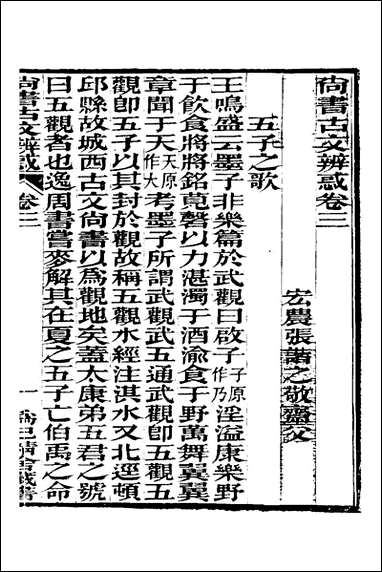 尚書古文辨惑卷三
宏農張諧之敬齋父
五子之歌
王鳴盛云墨子非樂篇於武觀曰啟子子原作乃淫溢康樂野
于飲食將將銘莧磬以力湛濁于酒渝食于野萬舞翼翼
章聞于天天原作大考墨子所謂武觀武五通武觀即五觀五
觀即五子以其封於觀故稱五觀水經注淇水又北逕頓
邱縣故城西古文尚書以為觀地矣蓋太康弟五君之號
曰五觀者也逸周書嘗麥解其在夏之五子亡伯禹之命
尚書古文辨惑
卷三
一